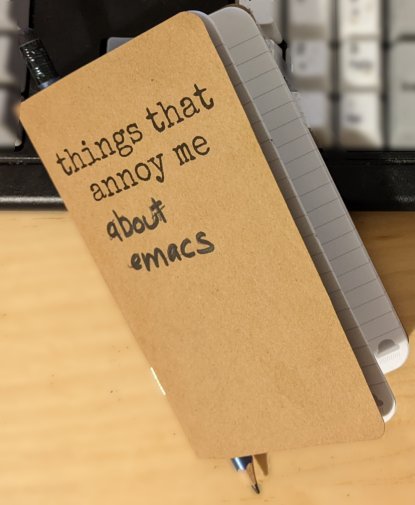 things that
annoy me
about
emacs